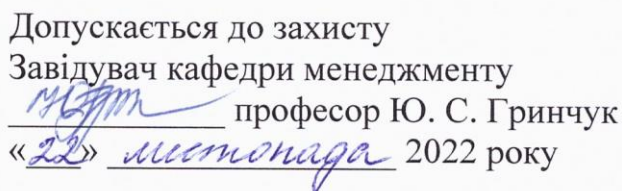 Допускається до захисту
Завідувач кафедри менеджменту
професор Ю. С. Гринчук
«22» листопада 2022 року